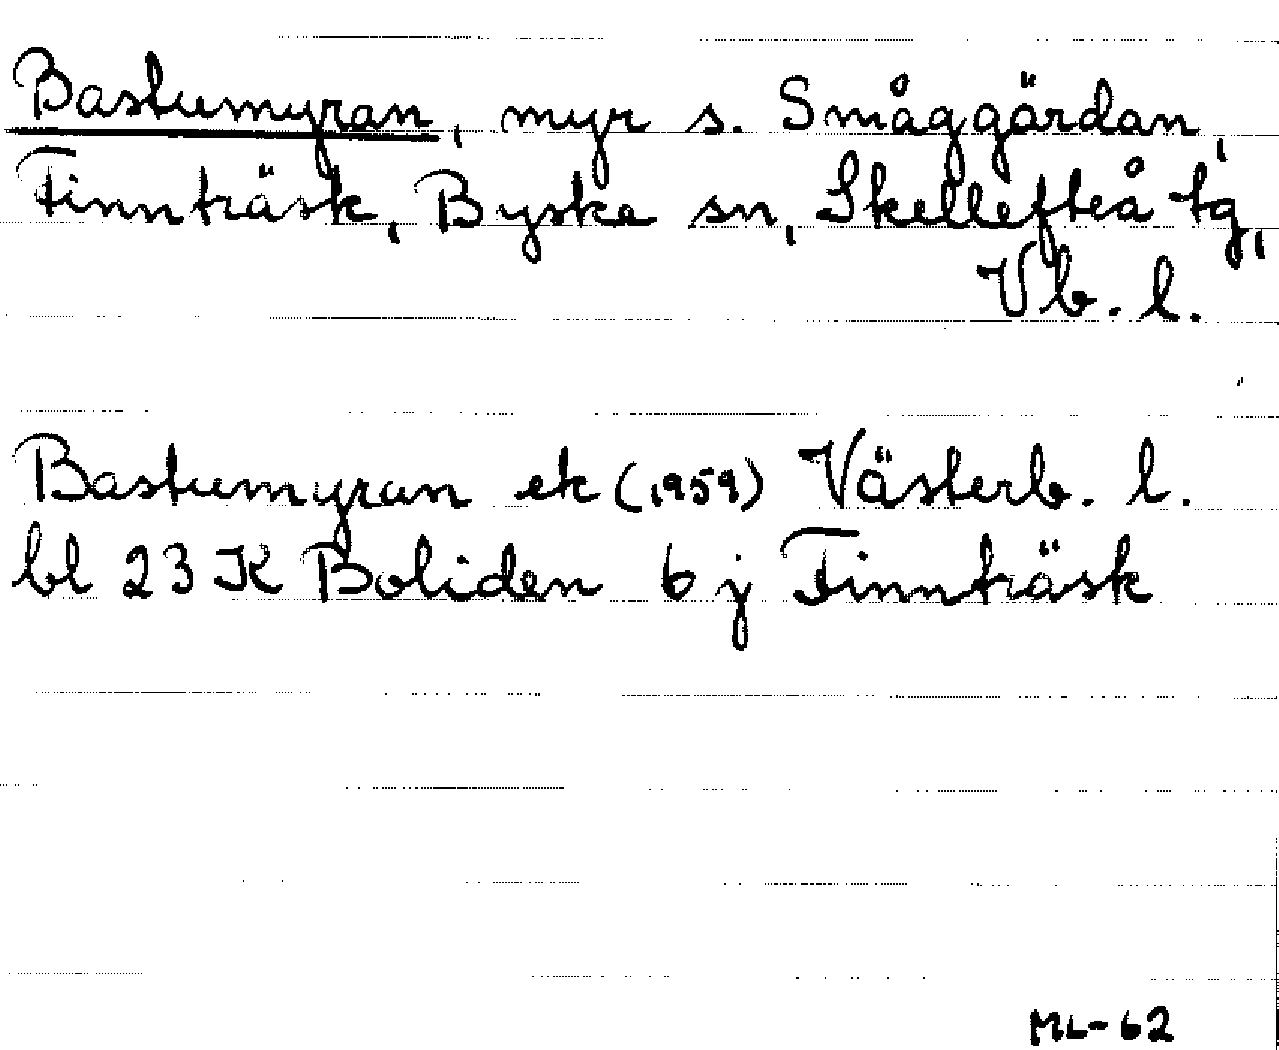 Bastumyran, myr s. Småggärdan,
Finnträsk, Byske sn, Skellefteå tg,
Vb. l.
Bastumyran ek (1959) Västerb. l.
bl 23 K Boliden 6 j Finnträsk
ML-62